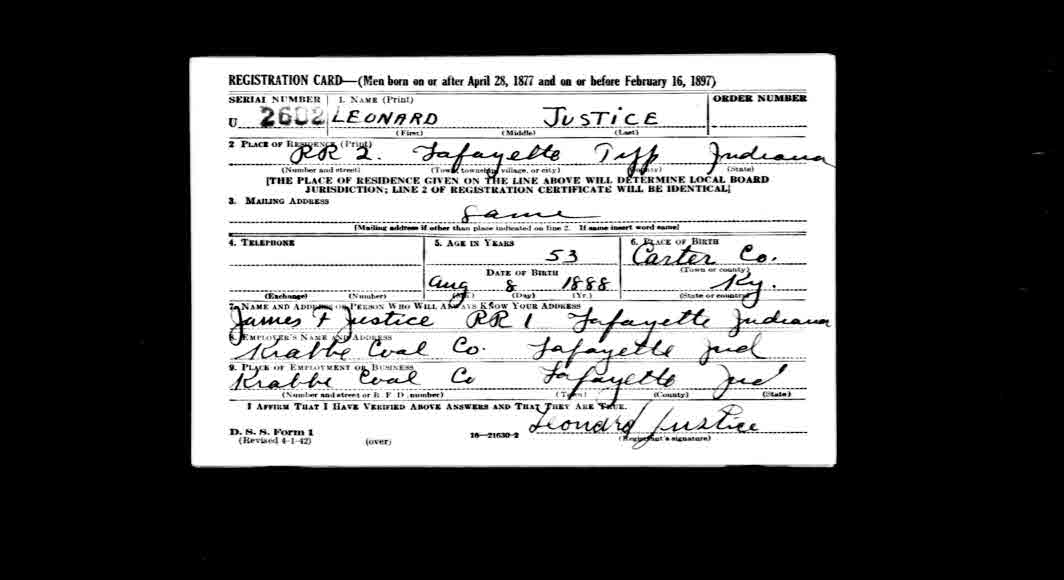 REGISTRATION CARD—(Men born on or after April 28, 1877 and on or before February 16, 1897)
SERIAL NUMBER 1. NAME (Print) ORDER NUMBER
U 2602 LEONARD JUSTICE
(First) (Middle) (Last)
2 PLACE OF RESIDENCE (Print)
RR 2. Lafayette Tipp Indiana
(Number and street) (Town, township, village, or city) (County) (State)
[THE PLACE OF RESIDENCE GIVEN ON THE LINE ABOVE WILL DETERMINE LOCAL BOARD
JURISDICTION; LINE 2 OF REGISTRATION CERTIFICATE WILL BE IDENTICAL]
3. MAILING ADDRESS
Same
[Mailing address if other than place indicated on line 2. If same insert word same]
4. TELEPHONE 5. AGE IN YEARS 6. PLACE OF BIRTH
53 Carter Co.
DATE OF BIRTH (Town or county)
Aug 8 1888 Ky.
(Exchange) (Number) (Mo.) (Day) (Yr.) (State or country)
7. NAME AND ADDRESS OF PERSON WHO WILL ALWAYS KNOW YOUR ADDRESS
James F Justice RR 1 Lafayette Indiana
8. EMPLOYER'S NAME AND ADDRESS
Krabbe Coal Co. Lafayette Ind
9. PLACE OF EMPLOYMENT OR BUSINESS
Krabbe Coal Co Lafayette Ind
(Number and street or R. F. D. number) (Town) (County) (State)
I AFFIRM THAT I HAVE VERIFIED ABOVE ANSWERS AND THAT THEY ARE TRUE.
Leonard Justice
D. S. S. Form 1
(Revised 4-1-42) (over) 16—21630-2 (Registrant's signature)